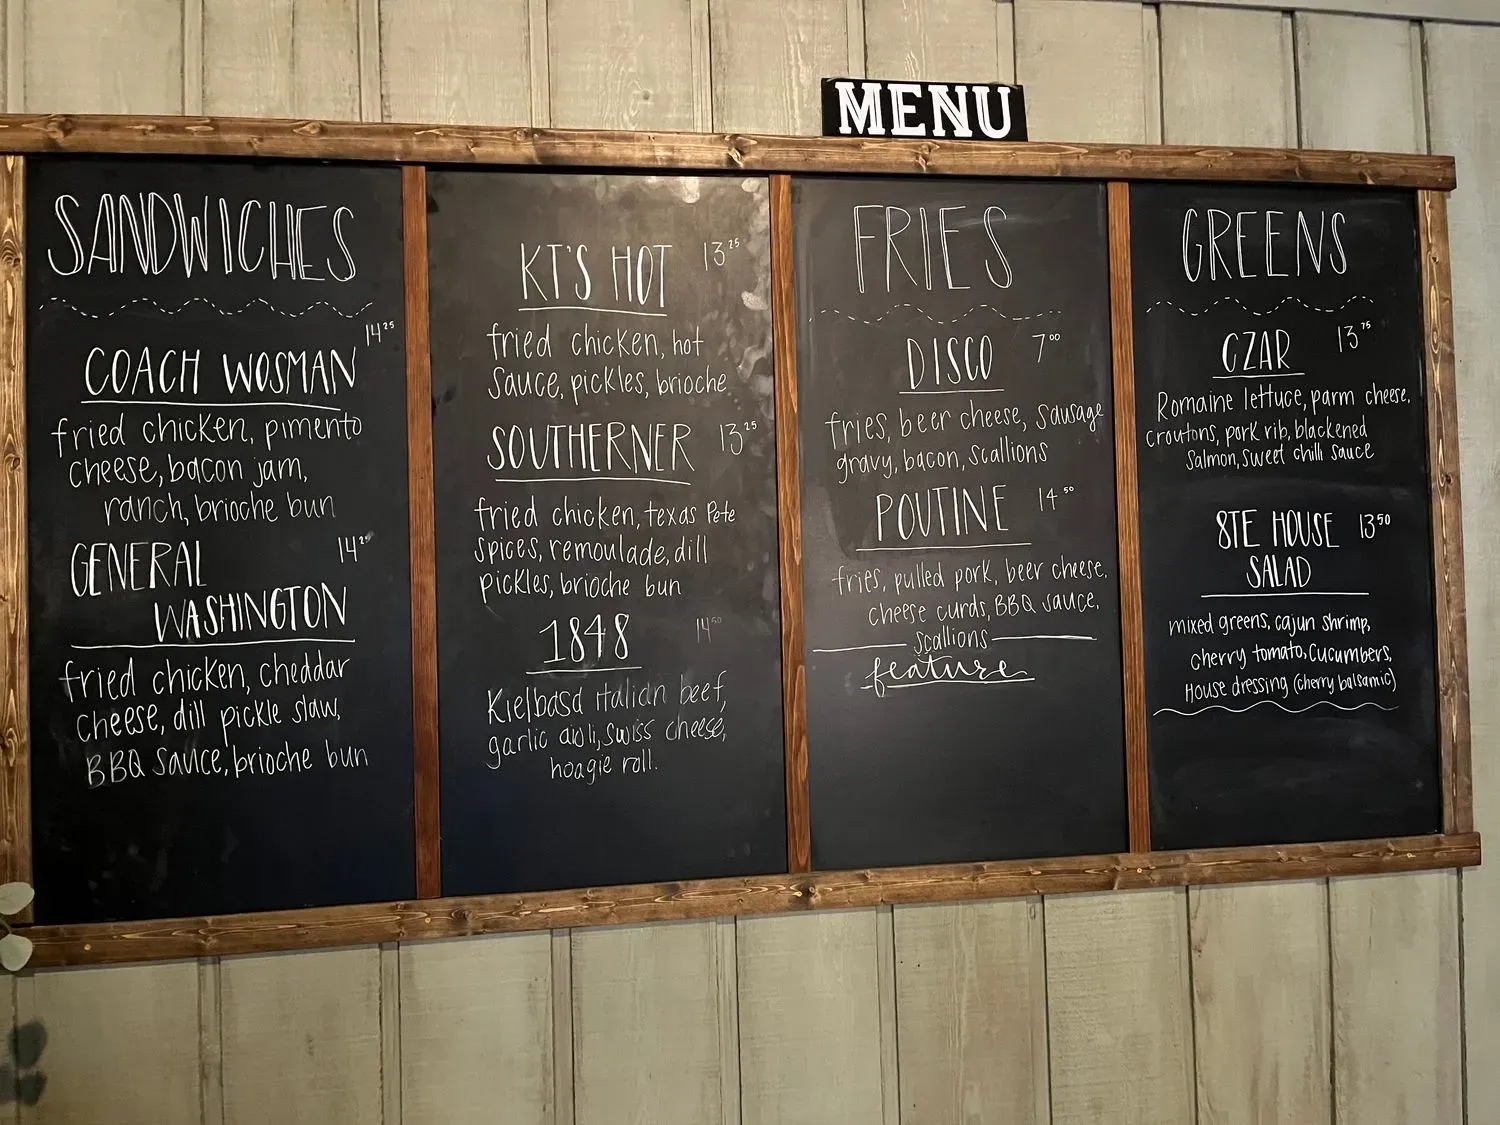 MENU
SANDWICHES
COACH WOSMAN 14 25
fried chicken, pimento
cheese, bacon jam,
ranch, brioche bun
GENERAL 14 25
WASHINGTON
fried chicken, cheddar
cheese, dill pickle slaw,
BBQ sauce, brioche bun
KT'S HOT 13 25
fried chicken, hot
sauce, pickles, brioche
SOUTHERNER 13 25
fried chicken, texas Pete
spices, remoulade, dill
pickles, brioche bun
1848 14 50
Kielbasa italian beef,
garlic aioli, swiss cheese,
hoagie roll.
FRIES
DISCO 7 00
fries, beer cheese, sausage
gravy, bacon, scallions
POUTINE 14 50
fries, pulled pork, beer cheese,
cheese curds, BBQ sauce,
scallions
feature
GREENS
CZAR 13 75
Romaine lettuce, parm cheese,
croutons, pork rib, blackened
salmon, sweet chili sauce
8TE HOUSE 13 50
SALAD
mixed greens, cajun shrimp,
cherry tomato, cucumbers,
House dressing (cherry balsamic)